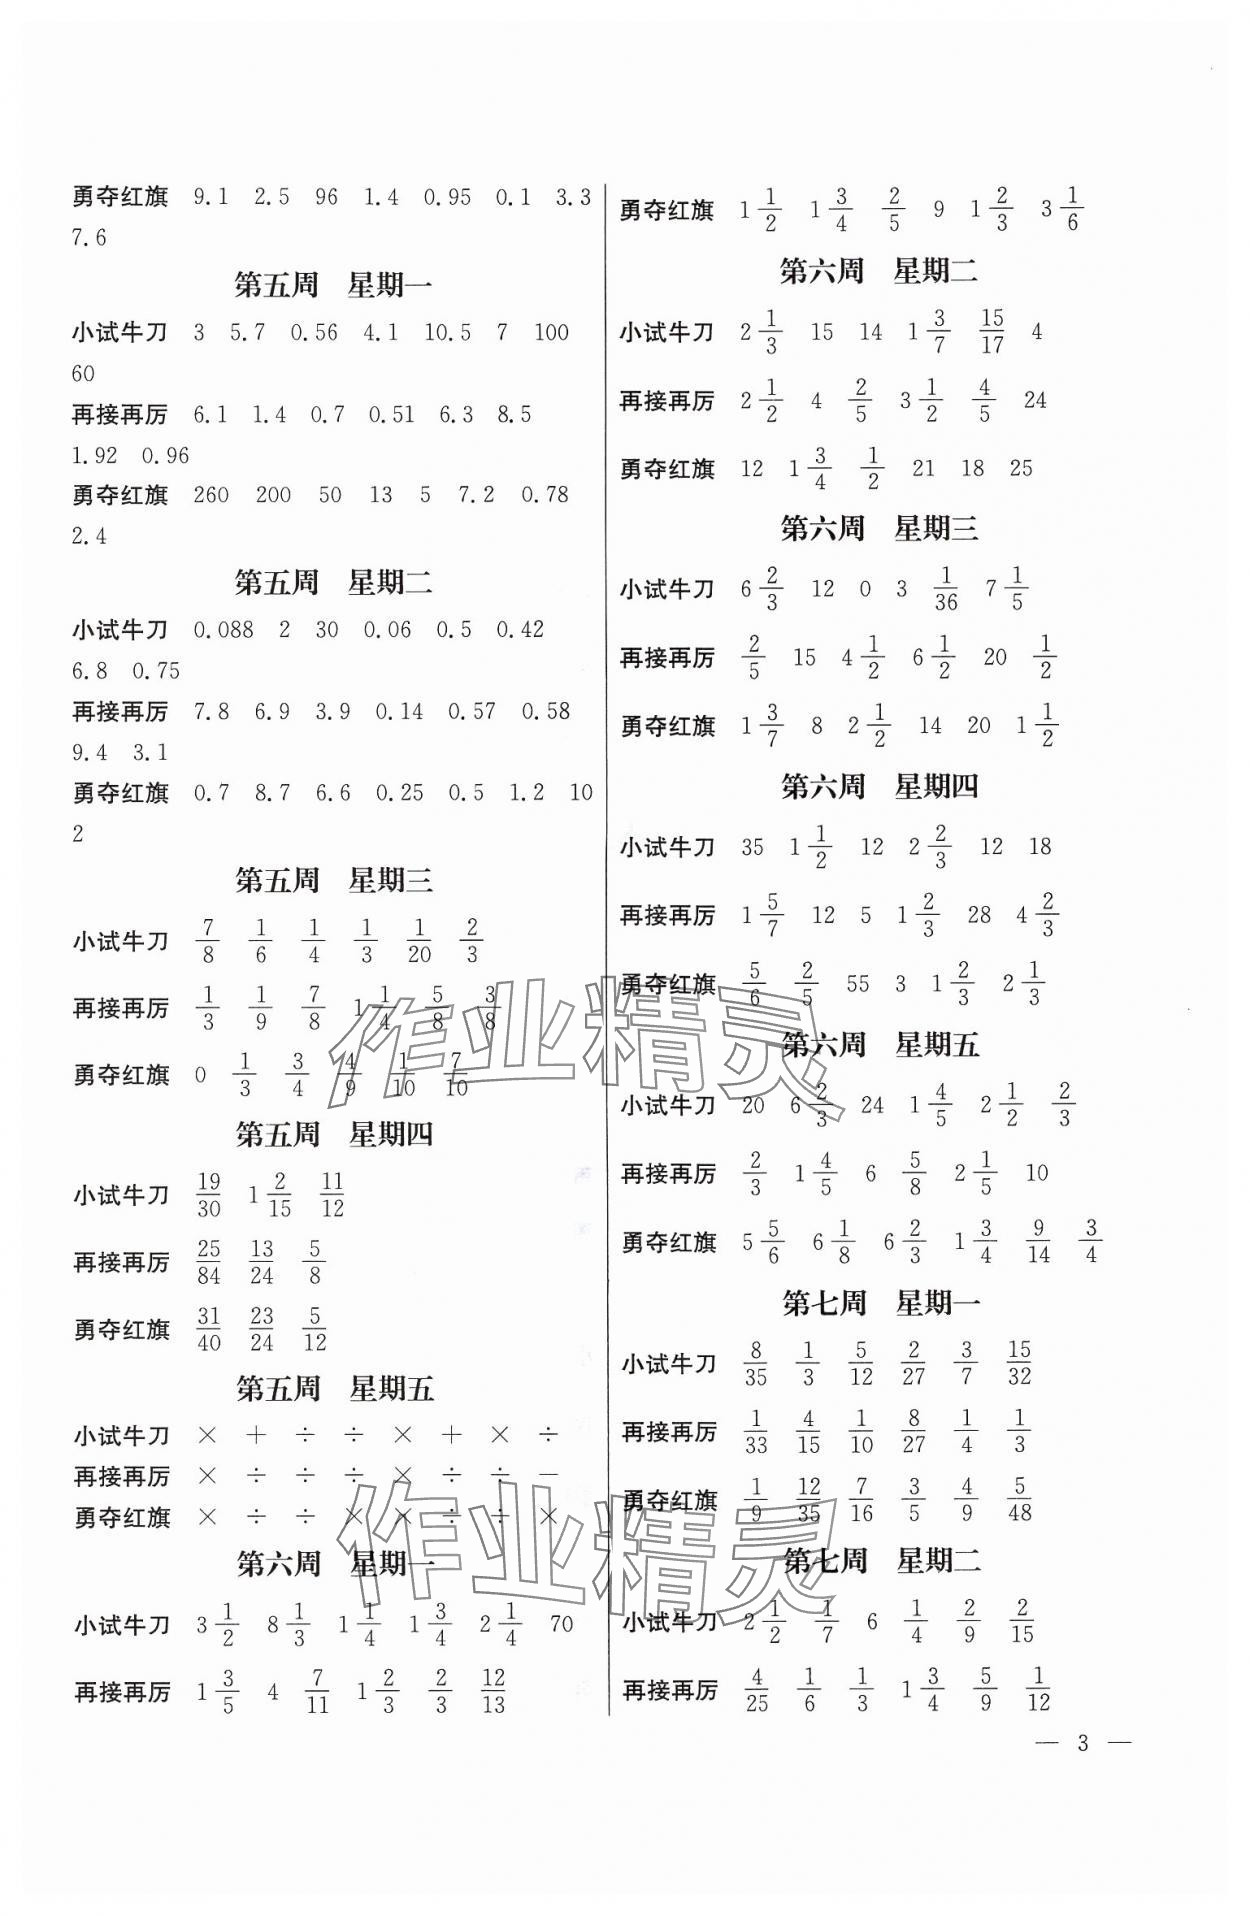 勇夺红旗 9.1 2.5 96 1.4 0.95 0.1 3.3
7.6
第五周 星期一
小试牛刀 3 5.7 0.56 4.1 10.5 7 100
60
再接再厉 6.1 1.4 0.7 0.51 6.3 8.5
1.92 0.96
勇夺红旗 260 200 50 13 5 7.2 0.78
2.4
第五周 星期二
小试牛刀 0.088 2 30 0.06 0.5 0.42
6.8 0.75
再接再厉 7.8 6.9 3.9 0.14 0.57 0.58
9.4 3.1
勇夺红旗 0.7 8.7 6.6 0.25 0.5 1.2 10
2
第五周 星期三
小试牛刀 7/8 1/6 1/4 1/3 1/20 2/3
再接再厉 1/3 1/9 7/8 1 1/4 5/8 3/8
勇夺红旗 0 1/3 3/4 4/9 1/10 7/10
第五周 星期四
小试牛刀 19/30 1 2/15 11/12
再接再厉 25/84 13/24 5/8
勇夺红旗 31/40 23/24 5/12
第五周 星期五
小试牛刀 × + ÷ ÷ × + × ÷
再接再厉 × ÷ ÷ ÷ × ÷ ÷ −
勇夺红旗 × ÷ ÷ × × ÷ ÷ ×
第六周 星期一
小试牛刀 3 1/2 8 1/3 1 1/4 1 3/4 2 1/4 70
再接再厉 1 3/5 4 7/11 1 2/3 2/3 12/13
勇夺红旗 1 1/2 1 3/4 2/5 9 1 2/3 3 1/6
第六周 星期二
小试牛刀 2 1/3 15 14 1 3/7 15/17 4
再接再厉 2 1/2 4 2/5 3 1/2 4/5 24
勇夺红旗 12 1 3/4 1/2 21 18 25
第六周 星期三
小试牛刀 6 2/3 12 0 3 1/36 7 1/5
再接再厉 2/5 15 4 1/2 6 1/2 20 1/2
勇夺红旗 1 3/7 8 2 1/2 14 20 1 1/2
第六周 星期四
小试牛刀 35 1 1/2 12 2 2/3 12 18
再接再厉 1 5/7 12 5 1 2/3 28 4 2/3
勇夺红旗 5/6 2/5 55 3 1 2/3 2 1/3
第六周 星期五
小试牛刀 20 6 2/3 24 1 4/5 2 1/2 2/3
再接再厉 2/3 1 4/5 6 5/8 2 1/5 10
勇夺红旗 5 5/6 6 1/8 6 2/3 1 3/4 9/14 3/4
第七周 星期一
小试牛刀 8/35 1/3 5/12 2/27 3/7 15/32
再接再厉 1/33 4/15 1/10 8/27 1/4 1/3
勇夺红旗 1/9 12/35 7/16 3/5 4/9 5/48
第七周 星期二
小试牛刀 2 1/2 1/7 6 1/4 2/9 2/15
再接再厉 4/25 1/6 1/3 1 3/4 5/9 1/12
— 3 —
作业精灵
作业精灵